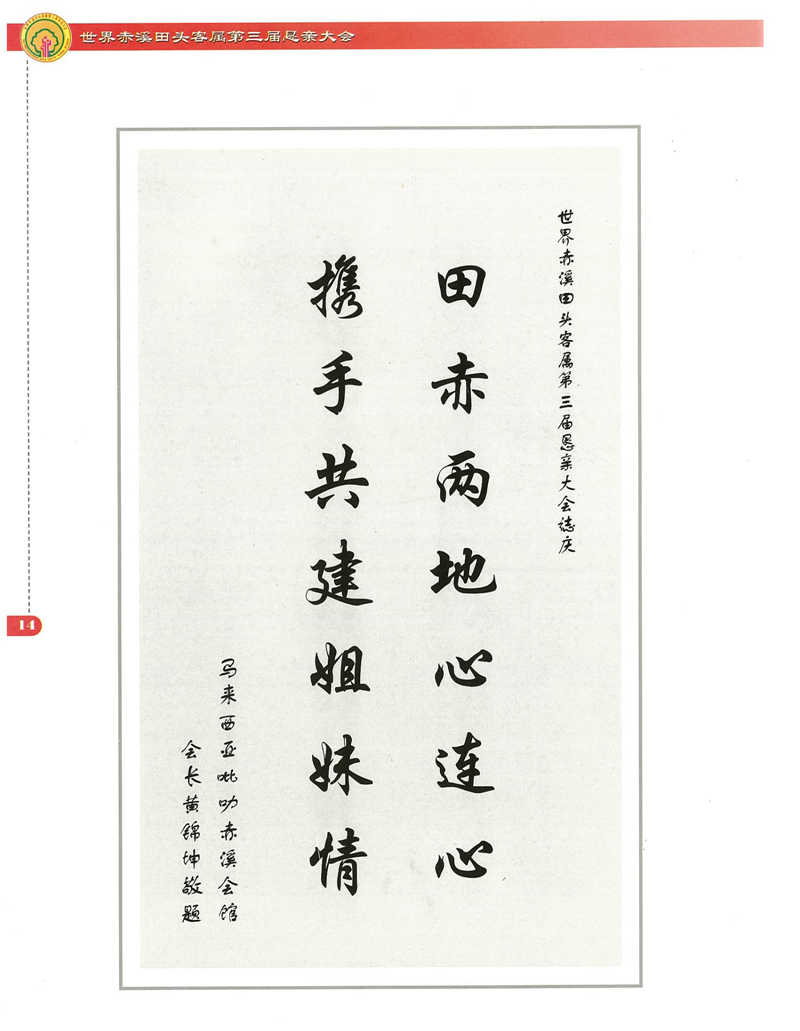 世界赤溪田头客属第三届恳亲大会
世界赤溪田头客属第三届恳亲大会志庆
田赤两地心连心
携手共建姐妹情
马来西亚吡叻赤溪会馆
会长黄锦坤敬题
14